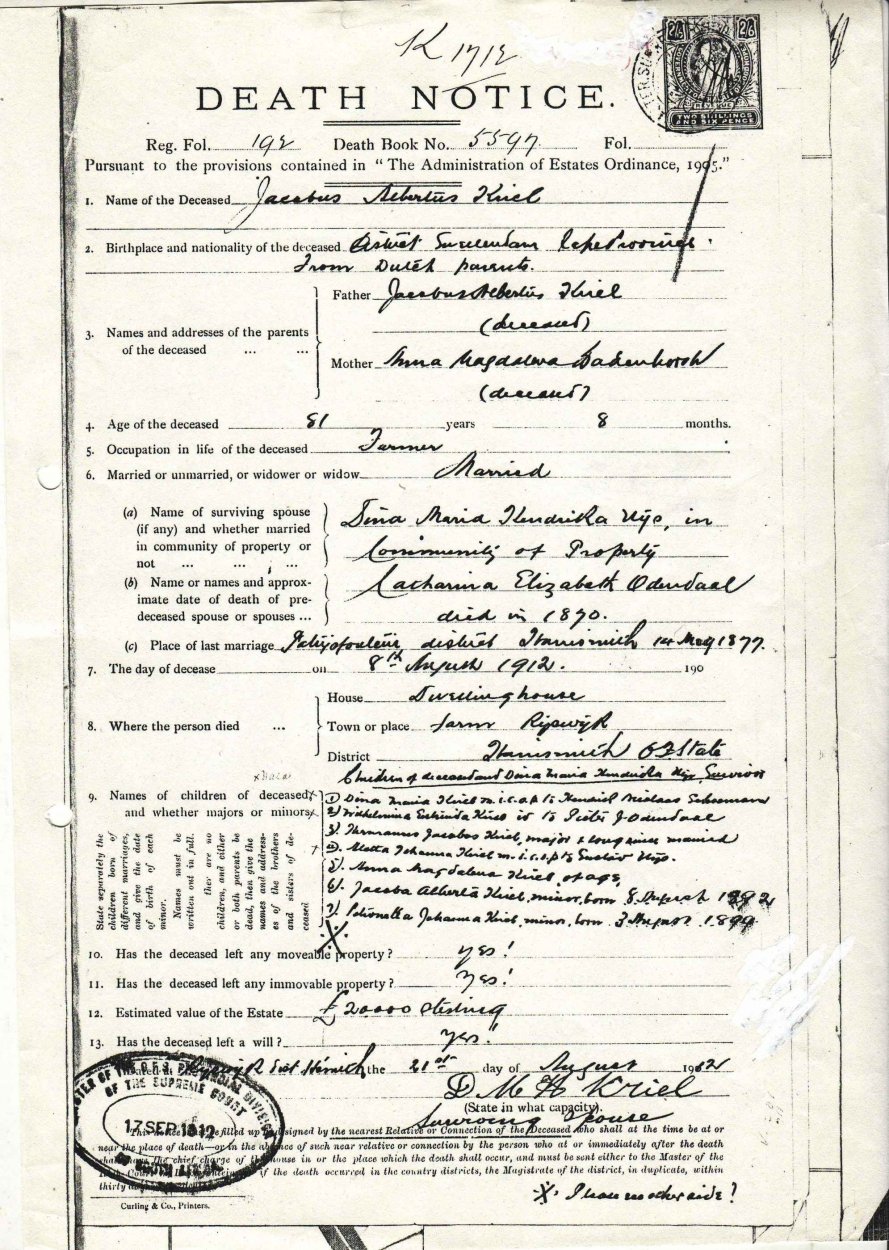 K 1712
2/6 2/6
TWO SHILLINGS
AND SIX PENCE
DEATH NOTICE.
Reg. Fol. 192 Death Book No. 5597 Fol.
Pursuant to the provisions contained in "The Administration of Estates Ordinance, 1905."
1. Name of the Deceased Jacobus Albertus Kriel
2. Birthplace and nationality of the deceased District Swellendam Cape Province.
From Dutch parents.
Father Jacobus Albertus Kriel
(deceased)
3. Names and addresses of the parents
of the deceased ... ...
Mother Anna Magdalena Badenhorst
(deceased)
4. Age of the deceased 81 years 8 months.
5. Occupation in life of the deceased Farmer
6. Married or unmarried, or widower or widow Married
(a) Name of surviving spouse
(if any) and whether married
in community of property or
not ... ... ...
Dina Maria Hendrika Uys, in
Community of Property
(b) Name or names and approx-
imate date of death of pre-
deceased spouse or spouses ...
Catharina Elizabeth Odendaal
died in 1870.
(c) Place of last marriage district Harrismith 14 May 1877.
7. The day of decease on 8th August 1912. 190
House Dwellinghouse
8. Where the person died ... Town or place farm Ryswyk
District Harrismith O F State
Children of deceased and Dina Maria Hendrika Uys Survivor
9. Names of children of deceased
and whether majors or minors
State separately the
children born of
different marriages,
and give the date
of birth of each
minor.
Names must be
written out in full.
If there are no
children, and either
or both parents be
dead, then give the
names and address-
es of the brothers
and sisters of de-
ceased
1) Dina Maria Kriel m.i.c.o.p to Hendrik Nicolaas Schoeman
2) Wilhelmina Kriel to Pieter J. Odendaal
3) Hermanus Jacobus Kriel, major married
4) Aletta Johanna Kriel m.i.c.o.p to Uys.
5) Anna Magdalena Kriel, of age,
6) Jacoba Alberta Kriel, minor, born 8 August 1892
7) Petronella Johanna Kriel, minor, born 3 August 1899
10. Has the deceased left any moveable property? yes!
11. Has the deceased left any immovable property? Yes!
12. Estimated value of the Estate £20000 sterling
13. Has the deceased left a will? yes!
Dated at Ryswyk Dist H'smith the 21st day of August 1912
D M H Kriel
(State in what capacity).
Surviving Spouse
MASTER OF THE O.F.S. PROVINCIAL DIVISION
OF THE SUPREME COURT
17 SEP 1912
OF SOUTH AFRICA
This notice filled up and signed by the nearest Relative or Connection of the Deceased who shall at the time be at or
near the place of death—or in the absence of such near relative or connection by the person who at or immediately after the death
shall have the chief charge of the house in or the place which the death shall occur, and must be sent either to the Master of the
Court if the death occurred in the country districts, the Magistrate of the district, in duplicate, within
thirty days
Curling & Co., Printers.
other side?